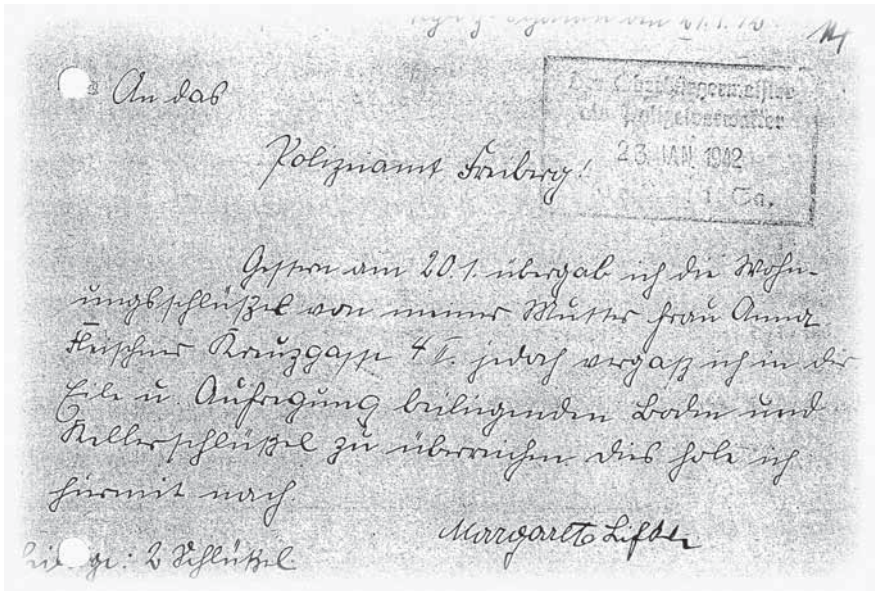 An das
Polizeiamt Freiberg!
Der Oberbürgermeister
als Polizeiverwalter
23. JAN. 1942
i. Sa.
Gestern am 20.1. übergab ich die Wohn-
ungsschlüßel von meiner Mutter Frau Anna
Fleischner Kreuzgasse 4 II. jedoch vergaß ich in der
Eile u. Aufregung beiliegenden Boden und
Kellerschlüßel zu überreichen. Dies hole ich
hiermit nach.
Margarete
2 Schlüßel